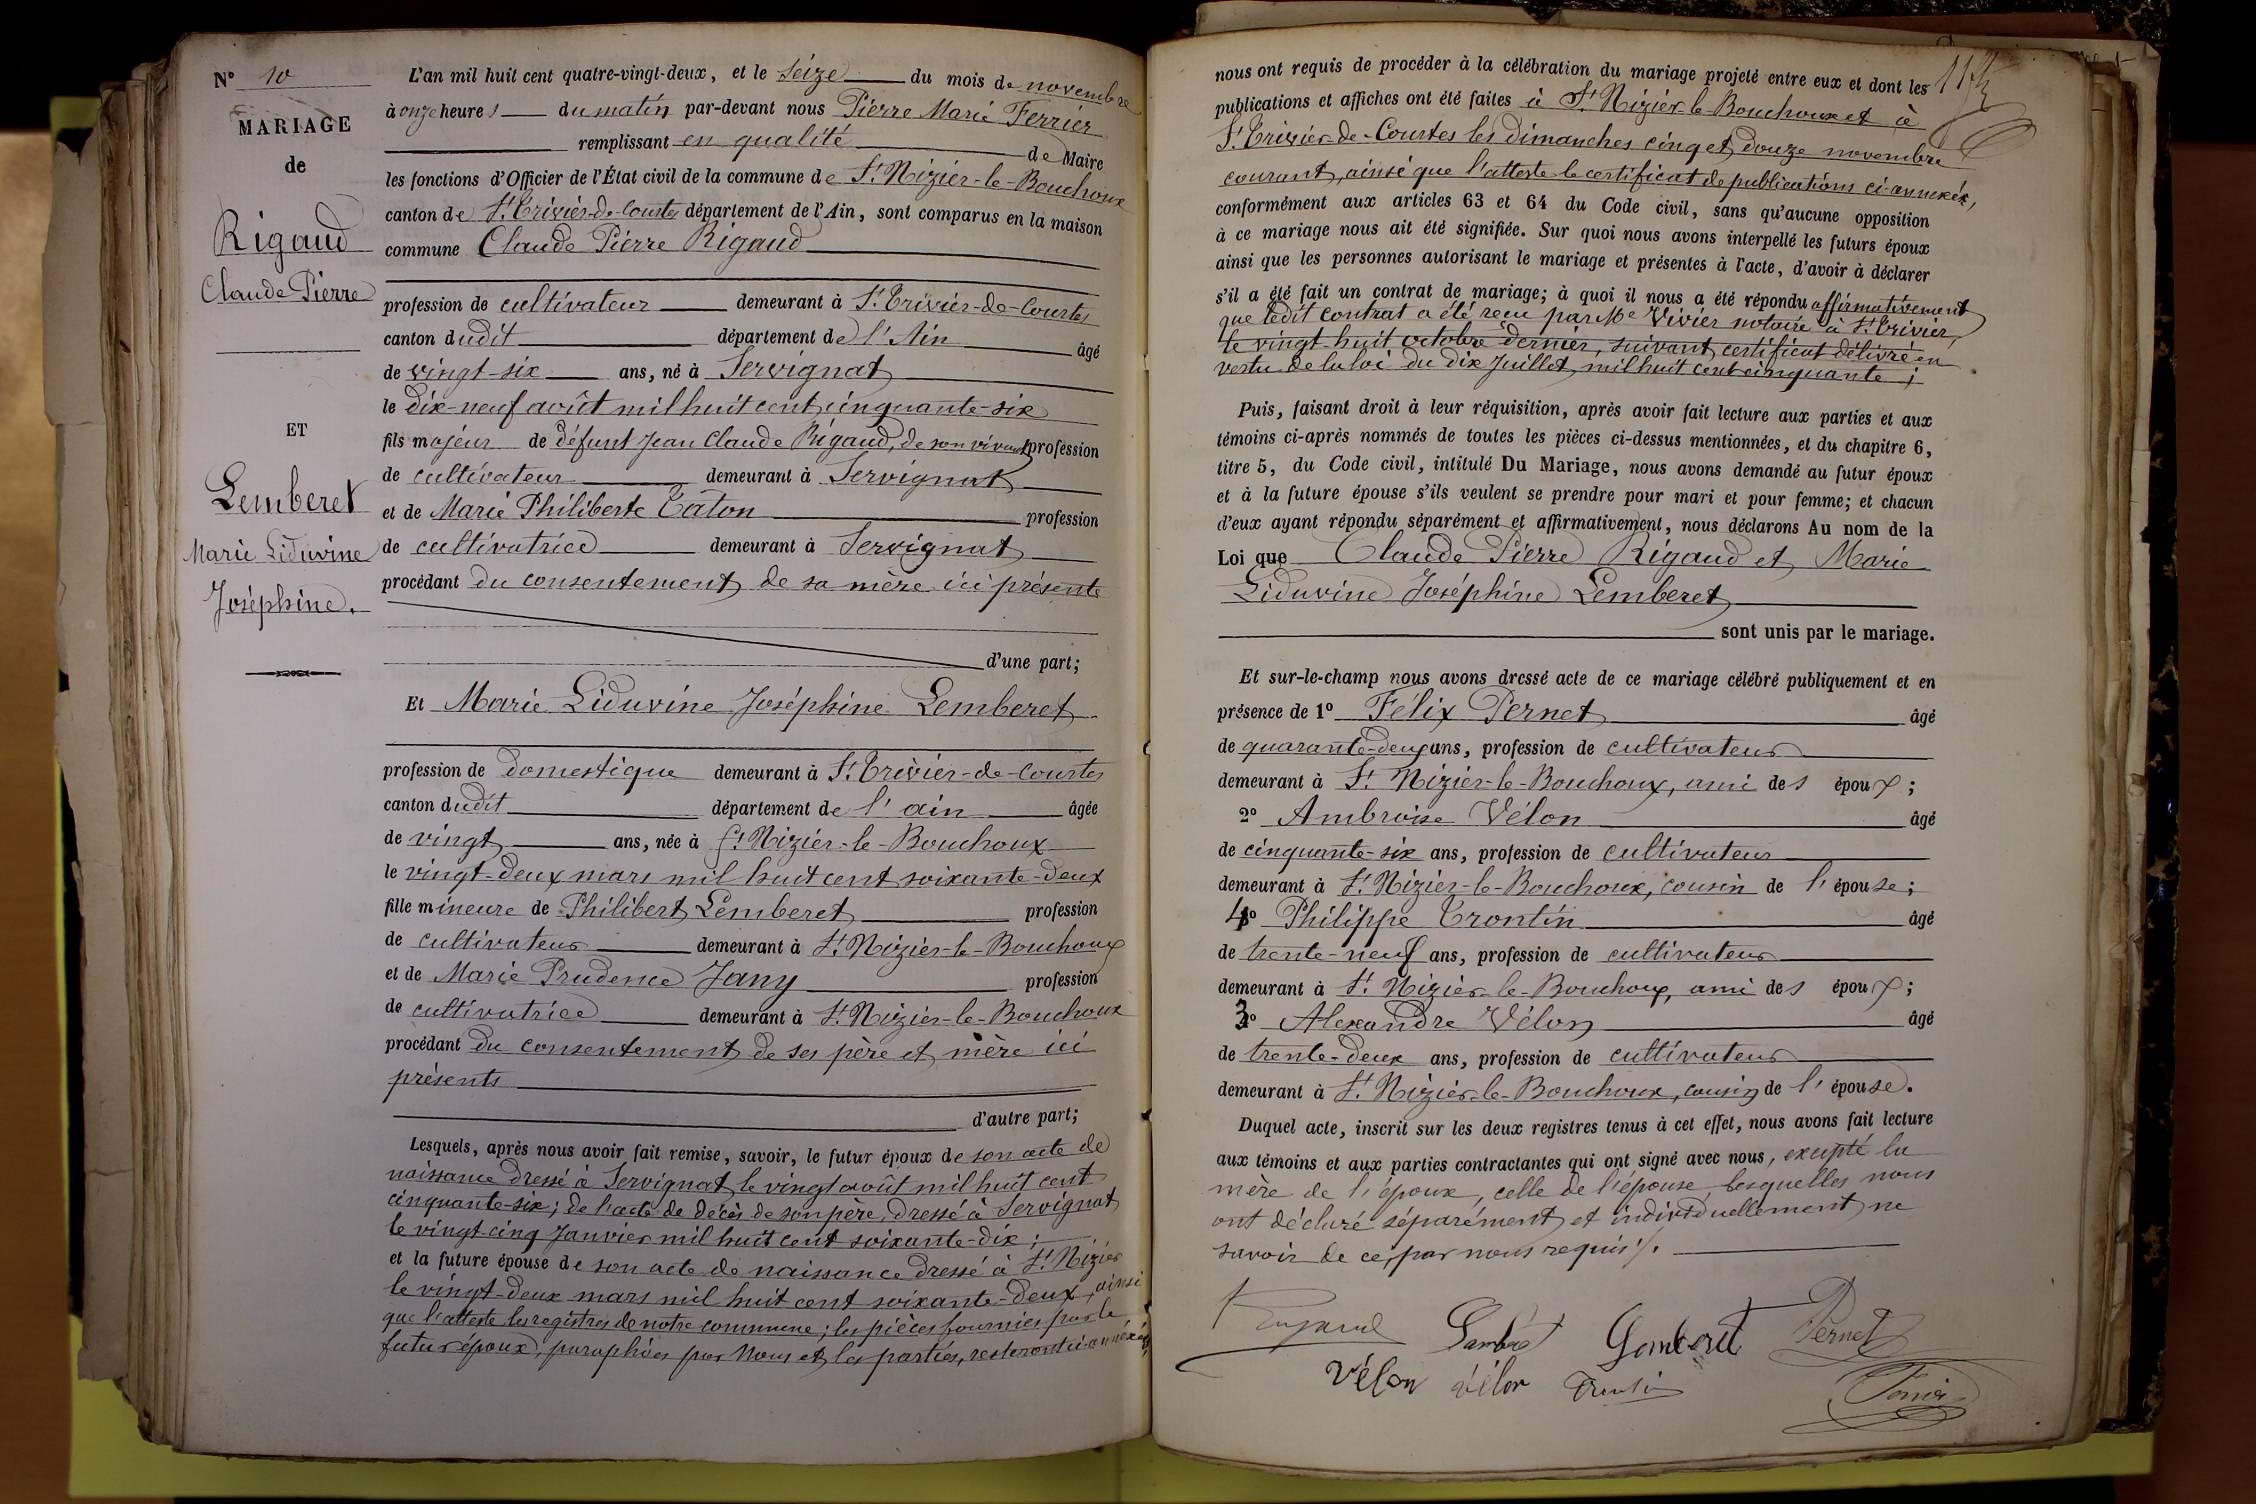 N° 10
MARIAGE
de
Rigaud
Claude Pierre
ET
Lemberet
Marie Liduvine
Joséphine.
L'an mil huit cent quatre-vingt-deux, et le seize du mois de novembre
à onze heures du matin par-devant nous Pierre Marie Ferrier
remplissant en qualité de Maire
les fonctions d'Officier de l'État civil de la commune de St Nizier-le-Bouchoux
canton de St Trivier-de-Courtes département de l'Ain, sont comparus en la maison
commune Claude Pierre Rigaud
profession de cultivateur demeurant à St Trivier-de-Courtes
canton dudit département de l'Ain âgé
de vingt-six ans, né à Servignat
le dix-neuf août mil huit cent cinquante-six
fils majeur de défunt Jean Claude Rigaud, de son vivant profession
de cultivateur demeurant à Servignat
et de Marie Philiberte Caton profession
de cultivatrice demeurant à Servignat
procédant du consentement de sa mère ici présente
d'une part;
Et Marie Liduvine Joséphine Lemberet
profession de domestique demeurant à St Trivier-de-Courtes
canton dudit département de l'ain âgée
de vingt ans, née à St Nizier-le-Bouchoux
le vingt-deux mars mil huit cent soixante-deux
fille mineure de Philibert Lemberet profession
de cultivateur demeurant à St Nizier-le-Bouchoux
et de Marie Prudence Jany profession
de cultivatrice demeurant à St Nizier-le-Bouchoux
procédant du consentement de ses père et mère ici
présents
d'autre part;
Lesquels, après nous avoir fait remise, savoir, le futur époux de son acte de
naissance dressé à Servignat le vingt août mil huit cent
cinquante-six; de l'acte de décès de son père, dressé à Servignat
le vingt-cinq Janvier mil huit cent soixante-dix;
et la future épouse de son acte de naissance dressé à St Nizier
le vingt-deux mars mil huit cent soixante-deux, ainsi
que l'atteste les registres de notre commune; les pièces fournies par le
futur époux, paraphées par Nous et les parties, resteront ci-annexées,
nous ont requis de procéder à la célébration du mariage projeté entre eux et dont les
publications et affiches ont été faites à St Nizier-le-Bouchoux et à
St Trivier-de-Courtes les dimanches cinq et douze novembre
courant, ainsi que l'atteste le certificat de publications ci-annexés,
conformément aux articles 63 et 64 du Code civil, sans qu'aucune opposition
à ce mariage nous ait été signifiée. Sur quoi nous avons interpellé les futurs époux
ainsi que les personnes autorisant le mariage et présentes à l'acte, d'avoir à déclarer
s'il a été fait un contrat de mariage; à quoi il nous a été répondu affirmativement
que ledit contrat a été reçu par Me Vivier notaire à St Trivier,
le vingt-huit octobre dernier, suivant certificat délivré en
vertu de la loi du dix Juillet mil huit cent cinquante;
Puis, faisant droit à leur réquisition, après avoir fait lecture aux parties et aux
témoins ci-après nommés de toutes les pièces ci-dessus mentionnées, et du chapitre 6,
titre 5, du Code civil, intitulé Du Mariage, nous avons demandé au futur époux
et à la future épouse s'ils veulent se prendre pour mari et pour femme; et chacun
d'eux ayant répondu séparément et affirmativement, nous déclarons Au nom de la
Loi que Claude Pierre Rigaud et Marie
Liduvine Joséphine Lemberet
sont unis par le mariage.
Et sur-le-champ nous avons dressé acte de ce mariage célébré publiquement et en
présence de 1° Félix Pernet âgé
de quarante-deux ans, profession de cultivateur
demeurant à St Nizier-le-Bouchoux, ami des époux;
2° Ambroise Vélon âgé
de cinquante-six ans, profession de cultivateur
demeurant à St Nizier-le-Bouchoux, cousin de l'épouse;
4° Philippe Trontin âgé
de trente-neuf ans, profession de cultivateur
demeurant à St Nizier-le-Bouchoux, ami des époux;
3° Alexandre Vélon âgé
de trente-deux ans, profession de cultivateur
demeurant à St Nizier-le-Bouchoux, cousin de l'épouse.
Duquel acte, inscrit sur les deux registres tenus à cet effet, nous avons fait lecture
aux témoins et aux parties contractantes qui ont signé avec nous, excepté la
mère de l'époux, celle de l'épouse, lesquelles nous
ont déclaré séparément et individuellement ne
savoir de ce, par nous requis.
Pernet
Vélon Vélon Trontin